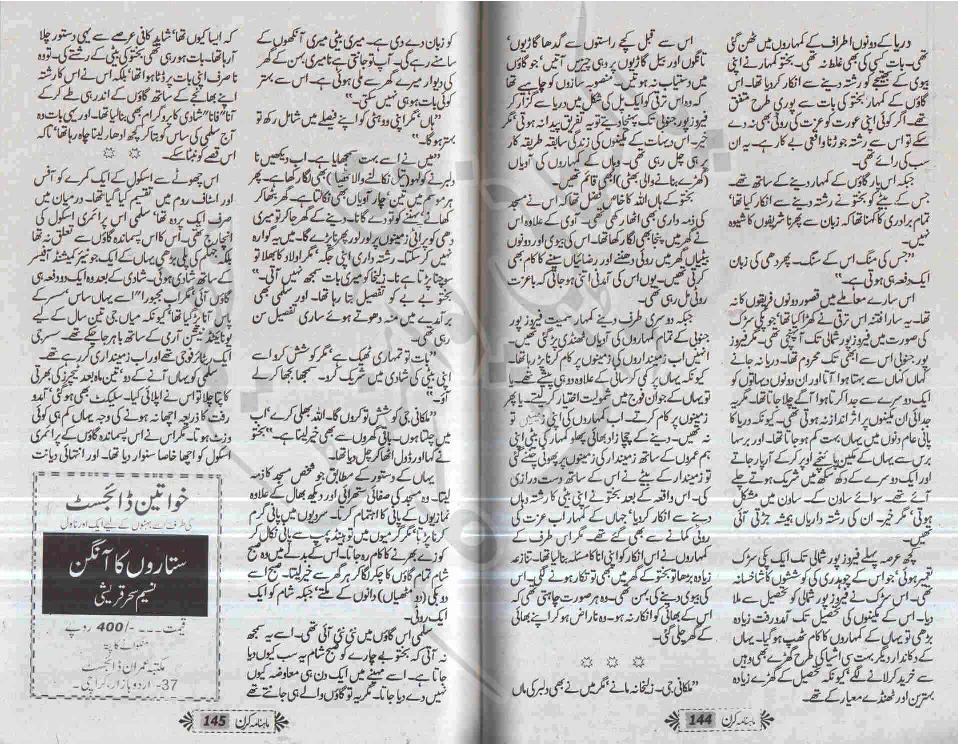 دریا کے دونوں اطراف کے کمہاروں میں ٹھن گئی
تھی۔ بات کسی کی بھی غلط نہ تھی۔ بختو کمہار نے اپنی
بیوی کے بھتیجے کو رشتہ دینے سے انکار کر دیا تھا۔ اس
گاؤں کے کمہار بختو کی بات سے پوری طرح متفق
تھے۔ اگر کوئی اپنی عورت کو عزت کی روٹی بھی نہ دے
سکے تو اس سے رشتہ جوڑنا واقعی بے کار ہے۔ یہ ان
سب کی رائے تھی۔
جبکہ اس پار گاؤں کے کمہار دینے کے ساتھ تھے۔
جس کے بیٹے کو بختو نے رشتہ دینے سے انکار کیا تھا۔
تمام برادری کا کہنا تھا کہ زبان سے پھرنا شریفوں کا شیوہ
نہیں۔
”جس کی منگ اس کے سنگ۔ پھر دھی کی زبان
ایک دفعہ ہی ہوتی ہے۔“
اس سارے معاملے میں قصور دونوں فریقوں کا نہ
تھا۔ یہ سارا فتنہ اس ترقی نے کھڑا کیا تھا جو پکی سڑک
کی صورت میں فیروز پور شمالی تک آ پہنچی تھی۔ مگر فیروز
پور جنوبی اس سے ابھی تک محروم تھا۔ دریا نہ جانے
کہاں کہاں سے بہتا ہوا آتا اور ان دونوں دیہاتوں کو
ایک دوسرے سے جدا کرتا ہوا آگے چلا جاتا تھا۔ مگر یہ
جدائی ان مکینوں پر اثر انداز نہ ہوتی تھی۔ کیونکہ دریا کا
پانی عام دنوں میں یہاں بہت کم ہو جاتا تھا۔ اور برسہا
برس سے یہاں کے مکین پائنچے اوپر کر کے آر پار جاتے
اور ایک دوسرے کے دکھ سکھ میں شریک ہوتے چلے
آئے تھے۔ سوائے ساون کے۔ ساون میں مشکل
ہوتی، مگر خیر۔ ان کی رشتہ داریاں ہمیشہ جڑتی آئی
تھیں۔
کچھ عرصہ پہلے فیروز پور شمالی تک ایک پکی سڑک
تعمیر ہوئی جو اس کے چوہدری کی کوششوں کا شاخسانہ
تھی۔ اس سڑک نے فیروز پور شمالی کو تحصیل سے ملا
دیا۔ اس کے مکینوں کی تحصیل تک آمد و رفت زیادہ
بڑھی تو یہاں کے کمہاروں کا کام ٹھپ ہو گیا۔ یہاں
کے دکاندار دیگر بہت سی اشیا کی طرح گھڑے بھی وہیں
سے خرید کر لانے لگے، کیونکہ تحصیل کے گھڑے زیادہ
بہترین اور ٹھنڈے معیار کے تھے۔
اس سے قبل کچے راستوں سے گدھا گاڑیوں
تانگوں اور بیل گاڑیوں پر وہی چیزیں آتیں، جو گاؤں
میں دستیاب نہ ہوتیں۔ منصوبہ سازوں کو چاہیے تھا
کہ وہ اس ترقی کو ایک پل کی شکل میں دریا سے گزار کر
فیروز پور جنوبی تک پہنچا دیتے تو یہ تفریق پیدا نہ ہوتی، مگر
خیر۔ اس دیہات کے مکینوں کی زندگی سابقہ طریقہ کار
پر ہی چل رہی تھی۔ وہاں کے کمہاروں کی آویاں
(گھڑے بنانے والی بھٹی) ابھی قائم تھیں۔
بختو کے ہاں اللہ کا خاص فضل تھا کہ اس نے مسجد
کی ذمہ داری بھی اٹھا رکھی تھی۔ آوی کے علاوہ اس
نے گھر میں پنجا بھی لگا رکھا تھا۔ اس کی بیوی اور دونوں
بیٹیاں گھر میں روئی دھننے اور رضائیاں سینے کا کام بھی
کرتی تھیں۔ یوں اس کی آمدنی اتنی ہو جاتی کہ باعزت
روٹی مل رہی تھی۔
جبکہ دوسری طرف دینے کمہار سمیت فیروز پور
جنوبی کے تمام کمہاروں کی آویاں ٹھنڈی پڑ گئی تھیں۔
انہیں اب زمینداروں کی زمینوں پر کام کرنا پڑ رہا تھا۔
کیونکہ یہاں پر کسی کرسانی کے علاوہ دو ہی پیشے تھے۔ یا
تو یہاں کے جوان فوج میں شمولیت اختیار کرتے۔ یا پھر
زمینوں پر کام کرتے۔ اب کمہاروں کی اپنی زمینیں تو
نہ تھیں۔ دینے کے چچا زاد بھائی پھلو کمہار کی بیٹی اپنی
ہم عمروں کے ساتھ زمیندار کی زمینوں پر پھوٹی چننے گئی
تو زمیندار کے بیٹے نے اس کے ساتھ دست درازی
کی۔ اس واقعہ کے بعد بختو نے اپنی بیٹی کا رشتہ وہاں
دینے سے انکار کر دیا، جہاں کے کمہار اب عزت کی
روٹی کمانے سے بھی گئے تھے۔ مگر اس طرف کے
کمہاروں نے اس انکار کو اپنی انا کا مسئلہ بنا لیا تھا۔ تنازعہ
زیادہ بڑھا تو بختو کے گھر میں بھی تو تکار ہونے لگی۔ اس
کی بیوی دینے کی بہن تھی۔ وہ ہر صورت چاہتی تھی کہ
اس کے بھائی کو انکار نہ ہو۔ وہ ناراض ہو کر اپنے بھائی
کے گھر چلی گئی۔
☼ ☼ ☼
”ملکانی جی۔ زلیخا نہ مانے، مگر میں نے بھی دلبر کی ماں
ماہنامہ کرن 144
کو زبان دے دی ہے۔ میری بیٹی میری آنکھوں کے
سامنے رہے گی۔ آپ تو جانتی ہے نا میری بہن کے گھر
کی دیوار میرے گھر سے ملی ہوئی ہے۔ اس سے بہتر
کوئی بات ہو ہی نہیں سکتی۔“
”ہاں، مگر اپنی ووہٹی کو اپنے فیصلے میں شامل رکھ تو
بہتر ہو گا۔“
”میں نے اسے بہت سمجھایا ہے۔ اب دیکھیں نا
دلبر نے کولہو (تیل نکالنے والا قضا) بھی لگا رکھا ہے۔ پھر
ہر موسم میں تین، چار آویاں بھی نکالتا ہے۔ گھر بٹھا کر
کھانے پہننے کو تو دے گا نا۔ دینے کے گھر جا کر تو میری
دھی کو پرائی زمینوں پر رول رول پھرنا پڑے گا۔ میں یہ گوارہ
نہیں کر سکتا۔ رشتہ داری اپنی جگہ، مگر اولاد کا بھلا تو
سوچنا پڑتا ہے نا۔ زلیخا کو میری بات سمجھ نہیں آتی۔“
بختو بے بے کو تفصیل بتا رہا تھا۔ اور سلمیٰ بھی
برآمدے میں منہ دھوتے ہوئے ساری تفصیل سن
رہی تھی۔
”بات تو تمہاری ٹھیک ہے، مگر کوشش کرو اسے
اپنی بیٹی کی شادی میں شریک کرو۔ سمجھا بجھا کر لے
آؤ۔“
”ملکانی جی کوشش تو کروں گا۔ اللہ بھلی کرے، اب
میں چلتا ہوں۔ باقی گھروں سے بھی خیر لینا ہے۔“ بختو
نے کہا اور ڈول اٹھا کر چل دیا تھا۔
یہاں کے دستور کے مطابق جو شخص مسجد کا ذمہ
لیتا۔ وہ مسجد کی صفائی ستھرائی اور دیکھ بھال کے علاوہ
نمازیوں کے پانی کا اہتمام کرتا۔ سردیوں میں پانی گرم
کرنا پڑتا، مگر گرمیوں میں تو ہینڈ پمپ سے پانی نکال کر
کوزے بھرنے کا کام رہ جاتا۔ اس کے بدلے میں وہ صبح
شام تمام گاؤں کا چکر لگا کر ہر گھر سے خیر لیتا۔ صبح اسے
دو بک (دو مٹھیاں) دانوں کے ملتے، جبکہ شام کو ایک
ایک روٹی۔
سلمیٰ اس گاؤں میں نئی نئی آئی تھی۔ اسے یہ سمجھ
نہ آتی کہ بختو بے چارے کو صبح شام یہ سب کیوں دیا
جاتا ہے۔ اسے مہینے میں ایک دن ہی معاوضہ کیوں
نہیں دے دیا جاتا۔ مگر یہ تو گاؤں والے ہی جانتے تھے
کہ ایسا کیوں تھا، شاید کافی عرصے سے یہی دستور چلا
آ رہا تھا۔ بات ہو رہی تھی بختو کی بیٹی کے رشتے کی۔ تو وہ
نا صرف اپنی بات پر ڈٹا ہوا تھا، بلکہ اس نے اس کا رشتہ
اپنے بھانجے کے ساتھ گاؤں کے اندر ہی طے کر کے
آنا ”فانا“ شادی کا پروگرام بھی بنا لیا تھا۔ اور یہی بات وہ
آج سلمیٰ کی ساس کو بتا کر کچھ ادھار لینا چاہ رہا تھا، تاکہ
اس قصے کو نبٹا سکے۔
☼ ☼
اس چھوٹے سے اسکول کے ایک کمرے کو آفس
اور اسٹاف روم میں تقسیم کیا گیا تھا۔ درمیان میں
صرف ایک پردہ تھا، سلمیٰ اس پرائمری اسکول کی
انچارج تھی۔ اس کا اس پسماندہ گاؤں سے تعلق نہ تھا
بلکہ جہلم کی پلی بڑھی یہاں کے ایک جونیئر کمیشنڈ آفیسر
کے ساتھ شادی ہوئی۔ شادی کے بعد وہ ایک دو دفعہ ہی
گاؤں آئی مگر اب مجبوراً“ اسے یہاں ساس سسر کے
پاس آنا پڑ گیا تھا، کیونکہ میاں جی تین سال کے لیے
یونائیٹڈ نیشن آرمی کے ساتھ باہر جا چکے تھے۔ سسر جی
ایک ریٹائر فوجی تھے اور اب زمینداری کر رہے تھے۔
سلمیٰ کو یہاں آنے کے دو تین ماہ بعد ٹیچرز کی بھرتی
کا پتا چلا تو اس نے اپلائی کیا۔ سلیکٹ بھی ہو گئی، آمد و
رفت کا ذریعہ اچھا نہ ہونے کی وجہ یہاں کم ہی کوئی
وزٹ ہوتا۔ مگر اس نے اس پسماندہ گاؤں کے پرائمری
اسکول کو اچھا خاصا سنوار دیا تھا۔ اور انتہائی دیانت
خواتین ڈائجسٹ
کی طرف سے بہنوں کے لیے ایک اور ناول
ستاروں کا آنگن
نسیم سحر قریشی
قیمت ۔۔۔ -/400 روپے
منگوانے کا پتا
مکتبہ عمران ڈائجسٹ
37- اردو بازار، کراچی۔
ماہنامہ کرن 145